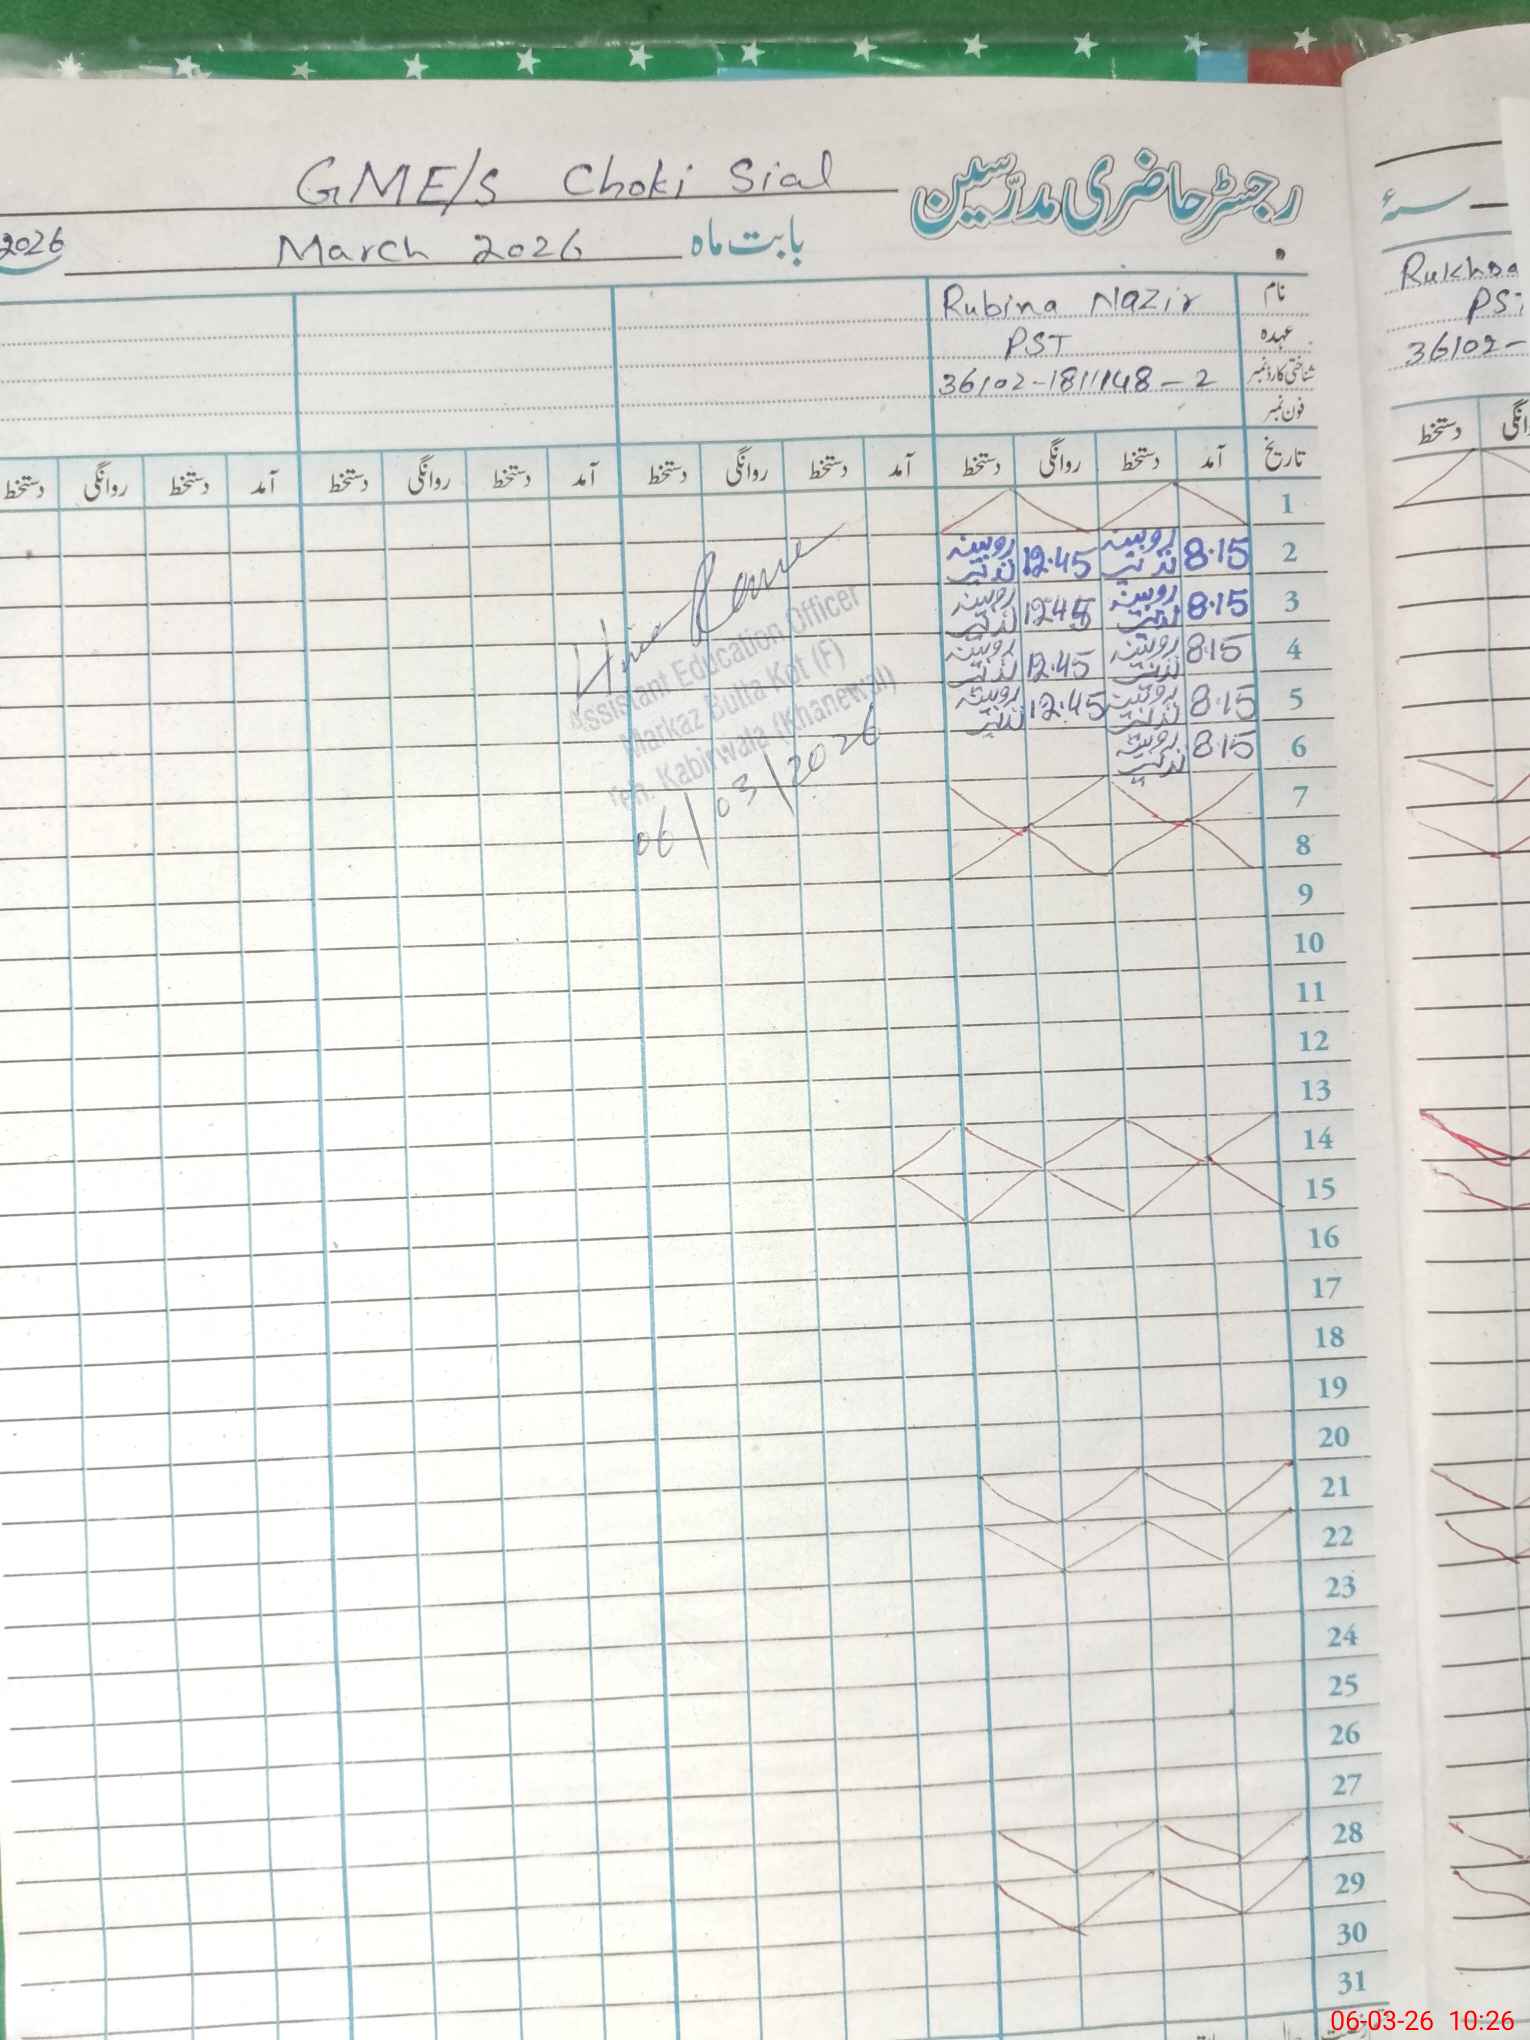 رجسٹر حاضری مدرّسین GME/S Choki Sial
بابت ماہ March 2026 2026
نام Rubina Nazir
عہدہ PST
شناختی کارڈ نمبر 36102-1811148-2
فون نمبر
تاریخ آمد دستخط روانگی دستخط آمد دستخط روانگی دستخط آمد دستخط روانگی دستخط آمد دستخط روانگی دستخط
1
2 8:15 روبینہ نذیر 12:45 روبینہ نذیر
3 8:15 روبینہ نذیر 12:45 روبینہ نذیر
4 8:15 روبینہ نذیر 12:45 روبینہ نذیر
5 8:15 روبینہ نذیر 12:45 روبینہ نذیر
6 8:15 روبینہ نذیر
7
8
9
10
11
12
13
14
15
16
17
18
19
20
21
22
23
24
25
26
27
28
29
30
31
Assistant Education Officer
Markaz Butta Kot (F)
Teh. Kabirwala (Khanewal)
06/03/2026
36102-
دستخط
06-03-26 10:26